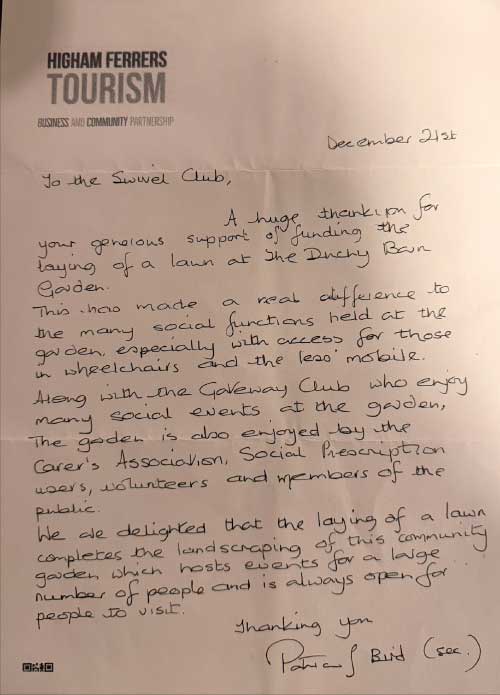 HIGHAM FERRERS
TOURISM
BUSINESS AND COMMUNITY PARTNERSHIP
December 21st
To the Swivel Club,
A huge thankyou for
your generous support of funding the
laying of a lawn at The Duchy Barn
Garden.
This has made a real difference to
the many social functions held at the
garden, especially with access for those
in wheelchairs and the less mobile.
Along with the Gateway Club who enjoy
many social events at the garden,
The garden is also enjoyed by the
Carer's Association, Social Prescription
users, volunteers and members of the
public.
We are delighted that the laying of a lawn
completes the landscaping of this community
garden which hosts events for a large
number of people and is always open for
people to visit.
Thanking you
Bird (sec.)